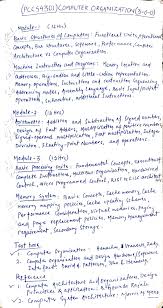 (PCCS4301) COMPUTER ORGANIZATION (3-0-0)
Module-1 (12 Hrs)
Basic Structures of Computers: Functional Units, operational
Concepts, Bus Structures, Software, Performance, Computer
Architecture vs Computer Organization.
Machine Instruction and Programs: Memory Location and
Addresses, Big-endian and Little-endian representation.
Memory operations, Instructions and Instruction Sequencing,
Addressing modes, Assembly Language, Basic Input/Output
operations, Subroutines, additional Instructions.
Module-2 (12 Hrs)
Arithmetic: Addition and Subtraction of Signed numbers,
Design of Fast Adders, Multiplication of positive numbers,
Signed-operand multiplication, Fast multiplication, Integer
Division, Floating-Point numbers, and operations.
Module-3 (12 Hrs)
Basic Processing Units: Fundamental Concepts, execution of
Complete Instructions, Multibus Organization, Hardwired
Control, Micro Programmed Control, RISC vs CISC architecture
Memory System: Basic Concepts, Cache memory, Cache
memory mapping policies, Cache updating schemes,
Performance Consideration, Virtual memories, Paging
and Page replacement policies, Memory Management
requirement, Secondary Storage.
Text book
1. Computer Organization:
2. Computer Organization and Design Hardware/
Software Interface: David A. Patterson,
Reference
Computer Architecture